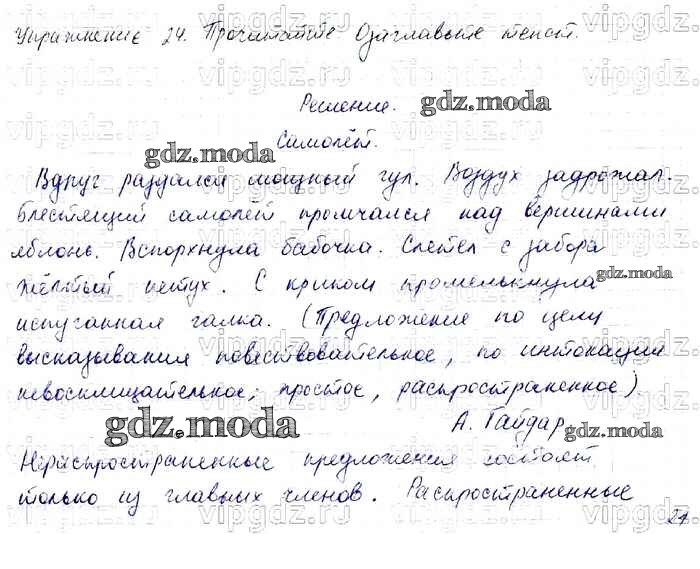 Упражнение 24. Прочитайте Озаглавьте текст.
Решение.
gdz.moda
Самолёт.
gdz.moda
Вдруг раздался мощный гул. Воздух задрожал.
Блестящий самолёт промчался над вершинами
яблонь. Вспорхнула бабочка. Слетел с забора
жёлтый петух. С криком промелькнула
gdz.moda
испуганная галка. (Предложение по цели
высказывания повествовательное, по интонации
невосклицательное, простое, распространенное).
gdz.moda
А. Гайдар
gdz.moda
Нераспространенные предложения состоят
только из главных членов. Распространенные
24